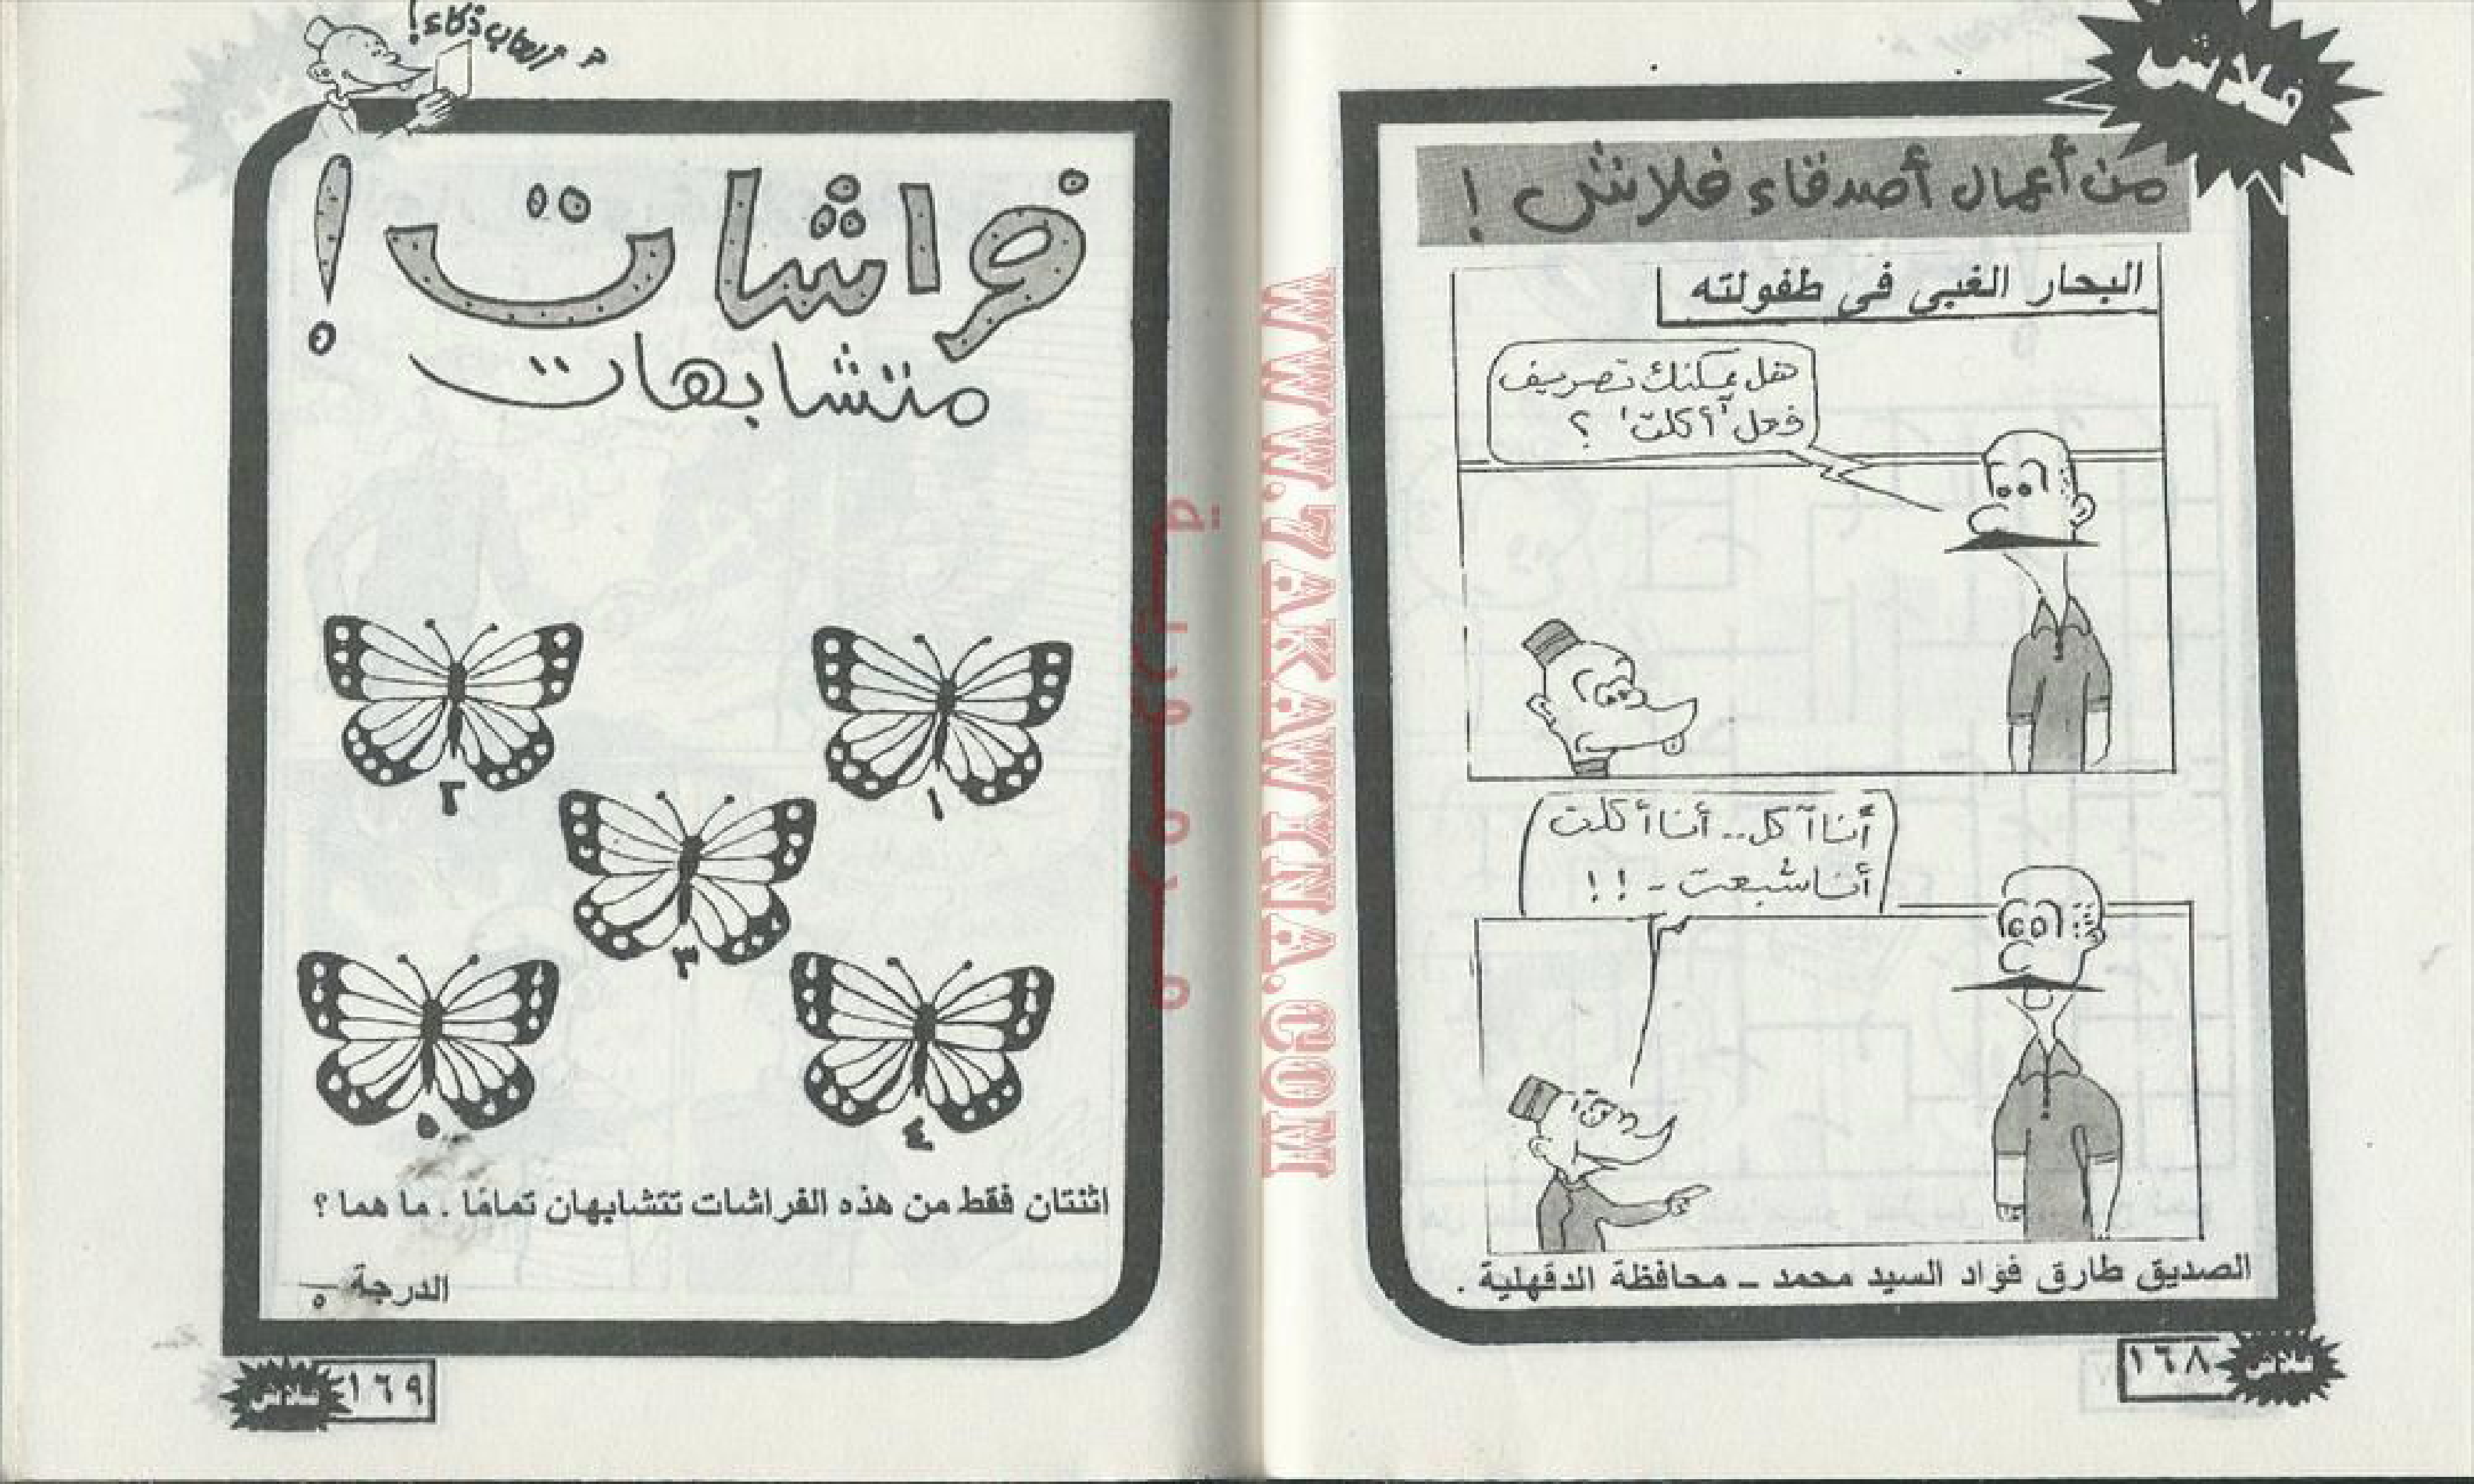 فلاش
من أعمال أصدقاء فلاش !
البحار الغبى فى طفولته
هل يمكنك تصريف
فعل "أكلت" ؟
أنا آكل.. أنا أكلت
أنا شبعت - !!
الصديق طارق فؤاد السيد محمد - محافظة الدقهلية .
١٦٨
فلاش
WWW.ZAKAWITNA.COM
ألعاب ذكاء!
فراشات !
متشابهات
١
٢
٣
٤
٥
اثنتان فقط من هذه الفراشات تتشابهان تمامًا . ما هما ؟
الدرجة ــ
٥
١٦٩
فلاش